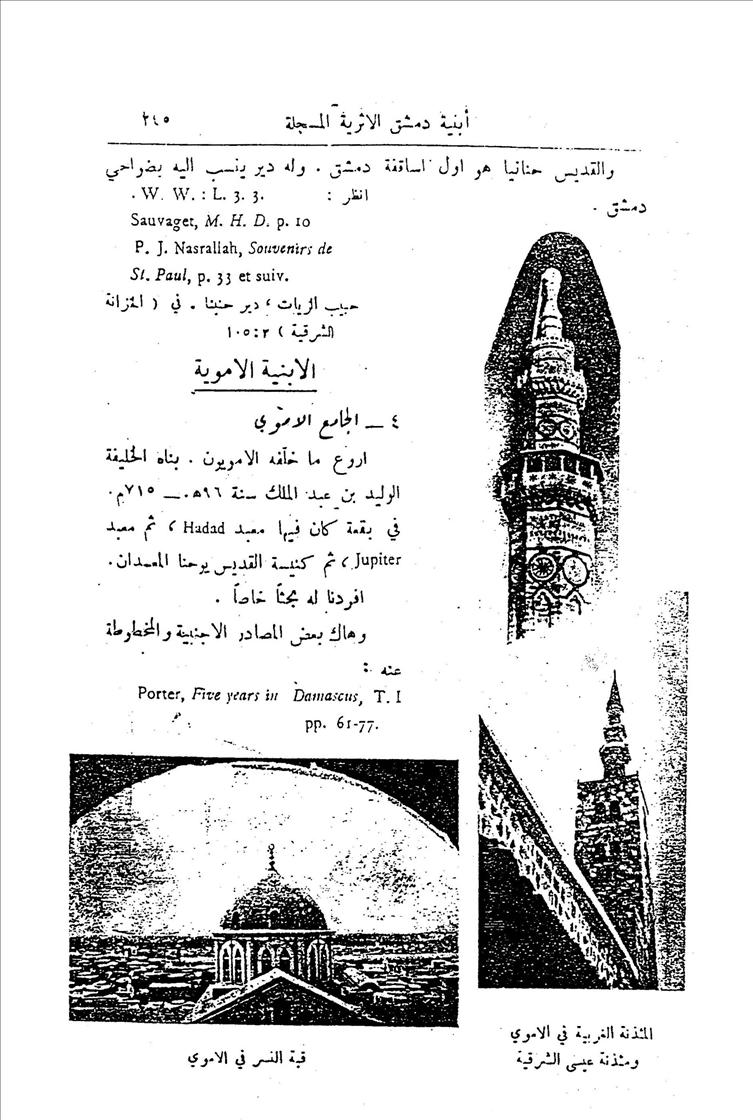 أبنية دمشق الاثرية المسجلة ٢٤٥
والقديس حنانيا هو اول اساقفة دمشق . وله دير ينسب اليه بضواحي
دمشق .
انظر : W. W. : L. 3. 3.
Sauvaget, M. H. D. p. 10
P. J. Nasrallah, Souvenirs de
St. Paul, p. 33 et suiv.
حبيب الزيات ، دير حنينا . في ( الخزانة
الشرقية ) ١٠٥:٢
الابنية الاموية
٤ — الجامع الاموي
اروع ما خلّفه الامويون . بناه الخليفة
الوليد بن عبد الملك سنة ٩٦هـ. — ٧١٥م.
في بقعة كان فيها معبد Hadad ، ثم معبد
Jupiter ، ثم كنيسة القديس يوحنا المعمدان.
افردنا له بحثاً خاصاً .
وهاك بعض المصادر الاجنبية والمخطوطة
عنه :
Porter, Five years in Damascus, T. I
pp. 61-77.
المئذنة الغربية في الاموي
ومئذنة عيسى الشرقية
قبة النسر في الاموي